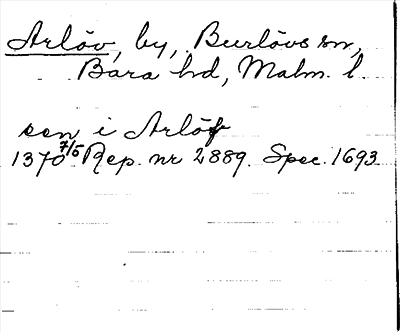 Arlöv, by, Burlövs sn,
Bara hd, Malm. l.
sen i Arlöf
1370 7/5 Rep. nr 2889. Spec. 1693